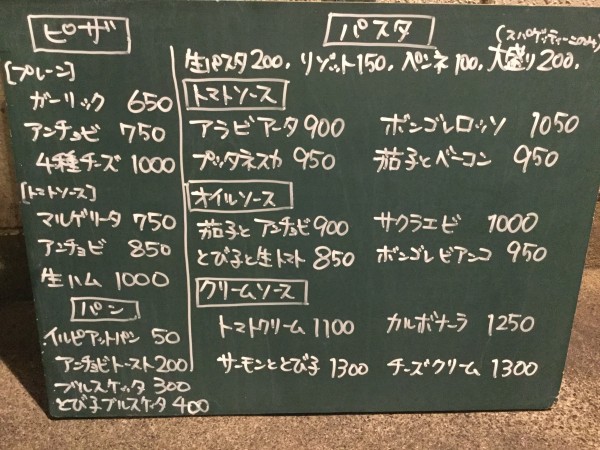 ピザ
[プレーン]
ガーリック 650
アンチョビ 750
4種チーズ 1000
[トマトソース]
マルゲリータ 750
アンチョビ 850
生ハム 1000
パン
イルピアットパン 50
アンチョビトースト 200
ブルスケッタ 300
とび子ブルスケッタ 400
パスタ
生パスタ200, リゾット150, ペンネ100, 大盛り200,
トマトソース
アラビアータ 900 ボンゴレロッソ 1050
プッタネスカ 950 茄子とベーコン 950
オイルソース
茄子とアンチョビ 900 サクラエビ 1000
とび子と生トマト 850 ボンゴレビアンコ 950
クリームソース
トマトクリーム 1100 カルボナーラ 1250
サーモンととび子 1300 チーズクリーム 1300